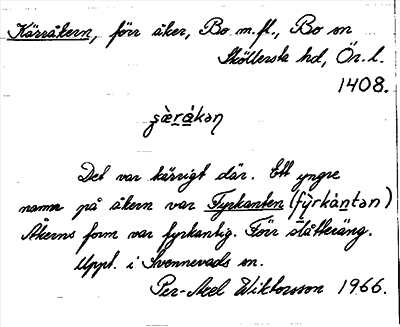 Kärråkern, förr åker, Bo m.fl., Bo sn
Sköllersta hd, Ör. l.
1408.
Det var kärrigt där. Ett yngre
namn på åkern var Fyrkanten (fỳrkàntən)
Åkerns form var fyrkantig. Förr slåtteräng.
Uppt. i Svennevads sn.
Per-Axel Wiktorsson 1966.